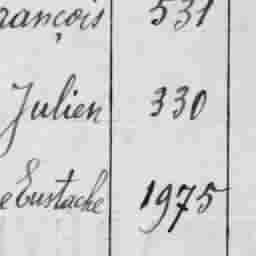 rançois 531
Julien 330
e Eustache 1975